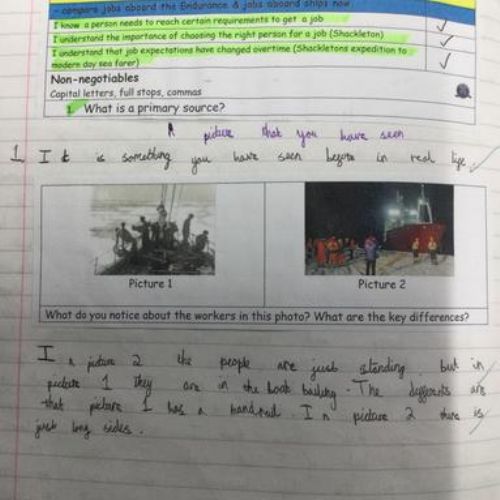 - compare jobs aboard the Endurance & jobs aboard ships now
I know a person needs to reach certain requirements to get a job
I understand the importance of choosing the right person for a job (Shackleton)
I understand that job expectations have changed overtime (Shackletons expedition to
modern day sea farer)
Non-negotiables
Capital letters, full stops, commas
1. What is a primary source?
A picture that you have seen
1 It is something you have seen before in real life.
Picture 1
Picture 2
What do you notice about the workers in this photo? What are the key differences?
In picture 2 the people are just standing but in
picture 1 they are in the boat . The differents are
that picture 1 has a handrail. In picture 2 there is
just long sides.